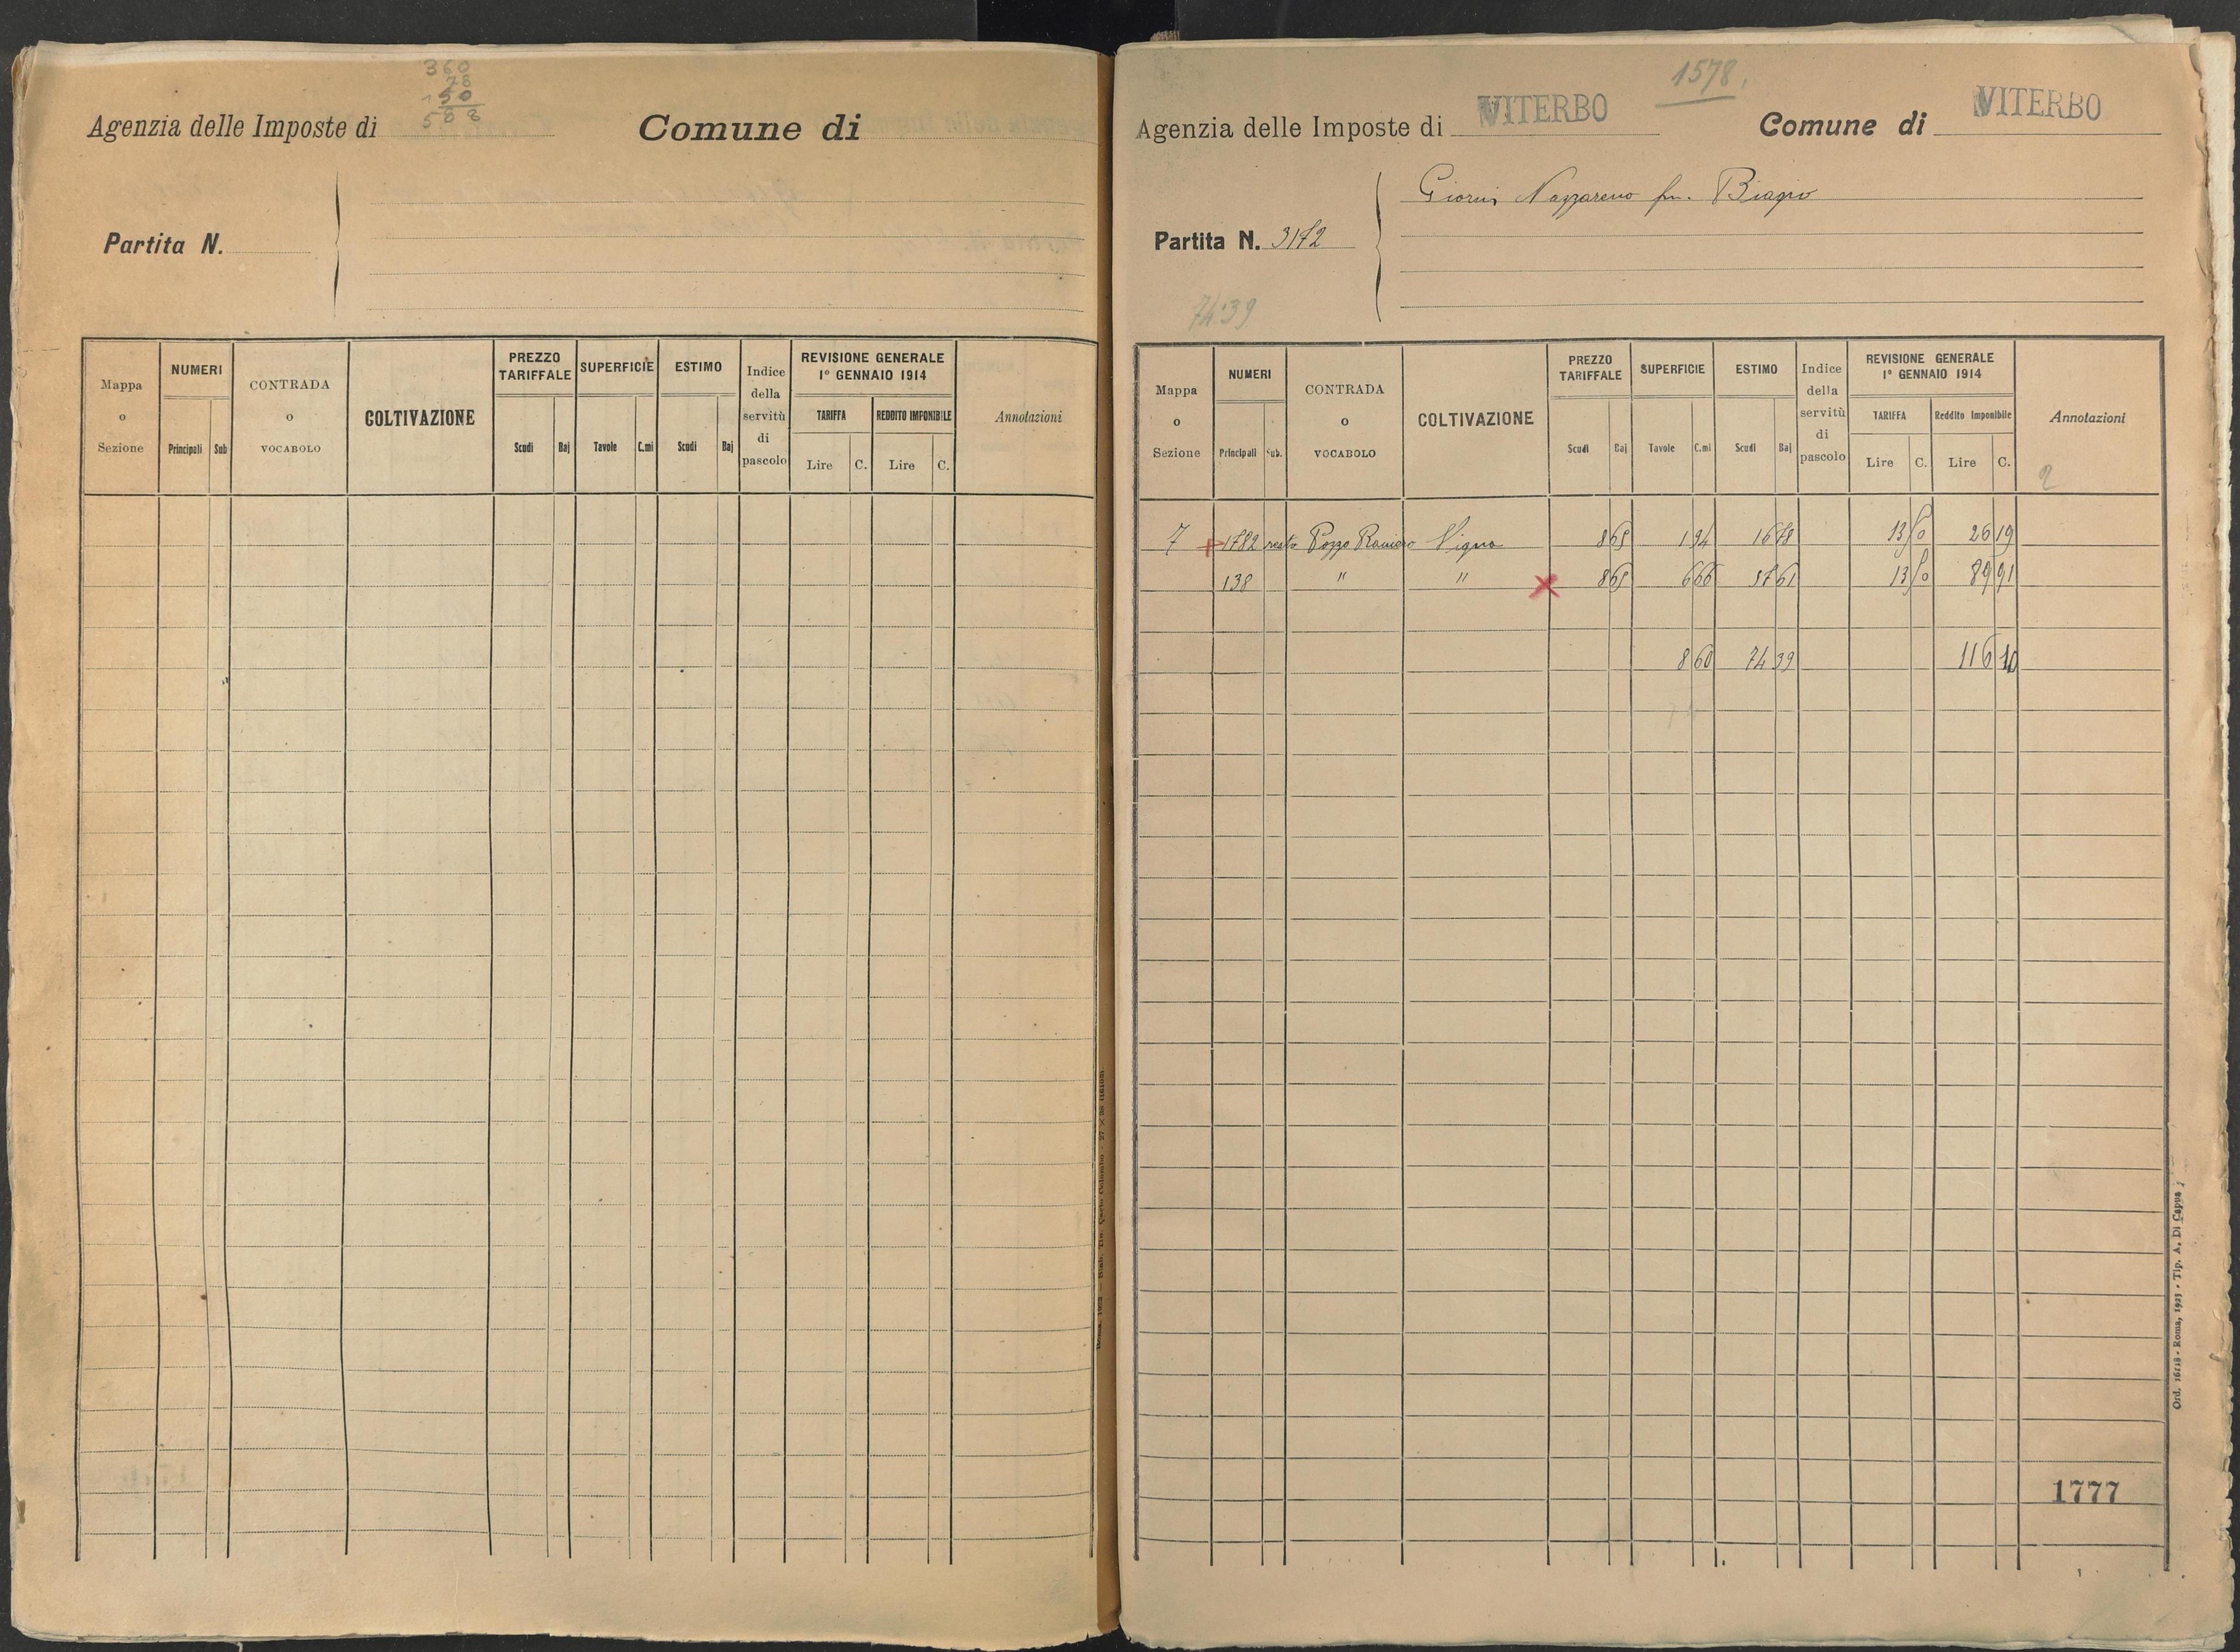 360
78
150
588
Agenzia delle Imposte di
Comune di
Partita N.
Mappa o Sezione
NUMERI
Principali
Sub
CONTRADA o VOCABOLO
COLTIVAZIONE
PREZZO TARIFFALE
Scudi
Baj
SUPERFICIE
Tavole
C.mi
ESTIMO
Scudi
Baj
Indice della servitù di pascolo
REVISIONE GENERALE
1° GENNAIO 1914
TARIFFA
REDDITO IMPONIBILE
Lire
C.
Lire
C.
Annotazioni
1578.
Agenzia delle Imposte di VITERBO
Comune di VITERBO
Giorni Nazzareno fu. Biagio
Partita N. 3172
74:39
Mappa o Sezione
NUMERI
Principali
Sub.
CONTRADA o VOCABOLO
COLTIVAZIONE
PREZZO TARIFFALE
Scudi
Baj
SUPERFICIE
Tavole
C.mi
ESTIMO
Scudi
Baj
Indice della servitù di pascolo
REVISIONE GENERALE
1° GENNAIO 1914
TARIFFA
Reddito Imponibile
Lire
C.
Lire
C.
Annotazioni
2
7 1782 resto Pozzo Raniero Vigna 8 65 1 94 16 78 13 50 26 19
138 " " 8 65 6 66 57 61 13 50 89 91
8 60 74 39 116 10
1777
Ord. 16118 - Roma, 1923 - Tip. A. Di Capua